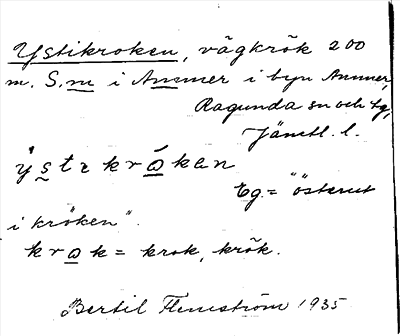 Ystikroken, vägkrök 200
m. S.m i Ammer i byn Ammer,
Ragunda sn och tg,
Jämtl. l.
ẏstɛkrɷkɐn
Eg. = "österut
i kröken".
krɷk = krok, krök.
Bertil Flemström 1935